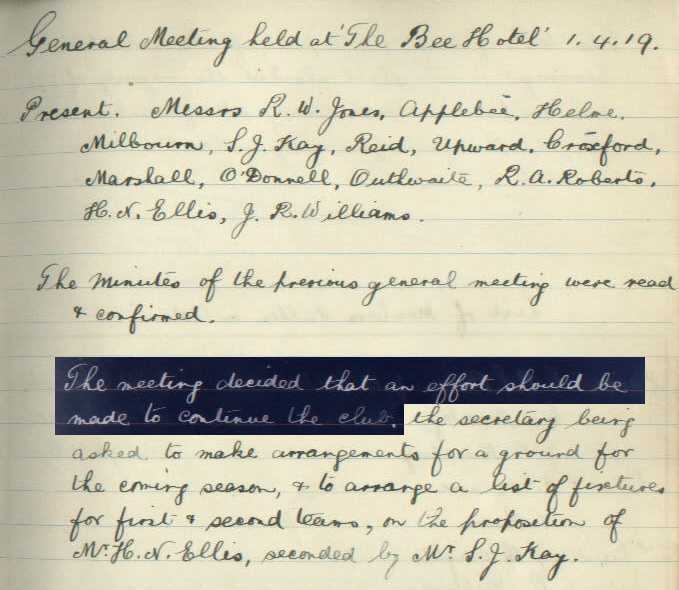 General Meeting held at 'The Bee Hotel' 1.4.19.
Present. Messrs R. W. Jones, Applebee, Helme.
Milbourn, S. J. Kay, Reid, Upward, Croxford,
Marshall, O'Donnell, Outhwaite, R. A. Roberts,
H. N. Ellis, J. R. Williams.
The minutes of the previous general meeting were read
& confirmed.
The meeting decided that an effort should be
made to continue the club, the secretary being
asked to make arrangements for a ground for
the coming season, & to arrange a list of fixtures
for first & second teams, on the proposition of
Mr. H. N. Ellis, seconded by Mr. S. J. Kay.